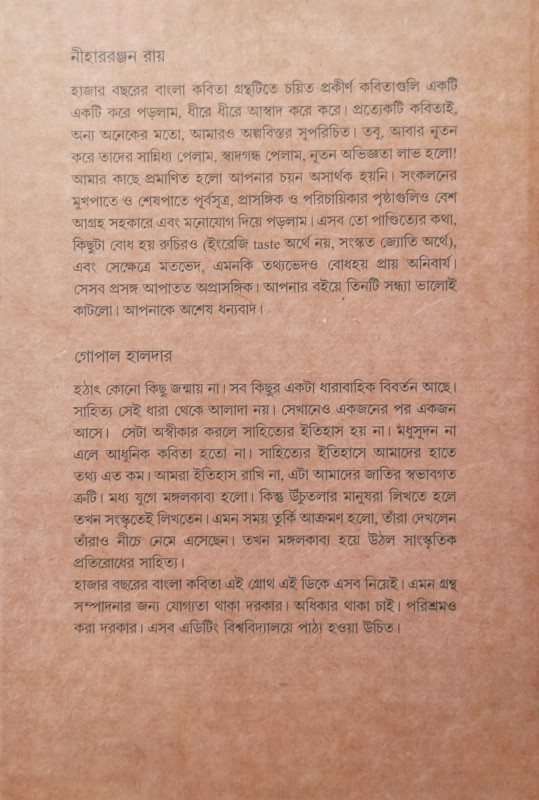 নীহাররঞ্জন রায়
হাজার বছরের বাংলা কবিতা গ্রন্থটিতে চয়িত প্রকীর্ণ কবিতাগুলি একটি
একটি করে পড়লাম, ধীরে ধীরে আস্বাদ করে করে। প্রত্যেকটি কবিতাই,
অন্য অনেকের মতো, আমারও অল্পবিস্তর সুপরিচিত। তবু, আবার নূতন
করে তাদের সান্নিধ্য পেলাম, স্বাদগন্ধ পেলাম, নূতন অভিজ্ঞতা লাভ হলো!
আমার কাছে প্রমাণিত হলো আপনার চয়ন অসার্থক হয়নি। সংকলনের
মুখপাতে ও শেষপাতে পূর্বসূত্র, প্রাসঙ্গিক ও পরিচায়িকার পৃষ্ঠাগুলিও বেশ
আগ্রহ সহকারে এবং মনোযোগ দিয়ে পড়লাম। এসব তো পাণ্ডিত্যের কথা,
কিছুটা বোধ হয় রুচিরও (ইংরেজি taste অর্থে নয়, সংস্কৃত জ্যোতি অর্থে),
এবং সেক্ষেত্রে মতভেদ, এমনকি তথ্যভেদও বোধহয় প্রায় অনিবার্য।
সেসব প্রসঙ্গ আপাতত অপ্রাসঙ্গিক। আপনার বইয়ে তিনটি সন্ধ্যা ভালোই
কাটলো। আপনাকে অশেষ ধন্যবাদ।
গোপাল হালদার
হঠাৎ কোনো কিছু জন্মায় না। সব কিছুর একটা ধারাবাহিক বিবর্তন আছে।
সাহিত্য সেই ধারা থেকে আলাদা নয়। সেখানেও একজনের পর একজন
আসে। সেটা অস্বীকার করলে সাহিত্যের ইতিহাস হয় না। মধুসূদন না
এলে আধুনিক কবিতা হতো না। সাহিত্যের ইতিহাসে আমাদের হাতে
তথ্য এত কম। আমরা ইতিহাস রাখি না, এটা আমাদের জাতির স্বভাবগত
ত্রুটি। মধ্য যুগে মঙ্গলকাব্য হলো। কিন্তু উঁচুতলার মানুষরা লিখতে হলে
তখন সংস্কৃতেই লিখতেন। এমন সময় তুর্কি আক্রমণ হলো, তাঁরা দেখলেন
তাঁরাও নীচে নেমে এসেছেন। তখন মঙ্গলকাব্য হয়ে উঠল সাংস্কৃতিক
প্রতিরোধের সাহিত্য।
হাজার বছরের বাংলা কবিতা এই গ্রোথ এই ডিকে এসব নিয়েই। এমন গ্রন্থ
সম্পাদনার জন্য যোগ্যতা থাকা দরকার। অধিকার থাকা চাই। পরিশ্রমও
করা দরকার। এসব এডিটিং বিশ্ববিদ্যালয়ে পাঠ্য হওয়া উচিত।